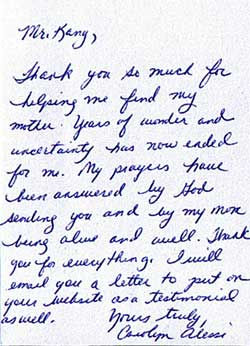 Mr. Kang,
Thank you so much for
helping me find my
mother. Years of wonder and
uncertainty has now ended
for me. My prayers have
been answered by God
sending you and by my mom
being alive and well. Thank
you for everything. I will
email you a letter to put on
your website as a testimonial
as well.
Yours truly,
Carolyn Alessi